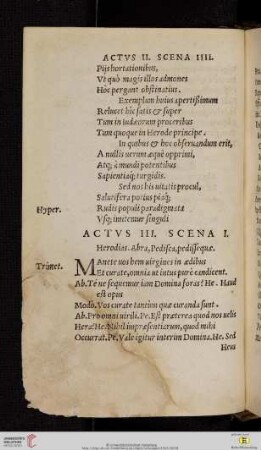 ACTVS II. SCENA IIII.
Pijs hortationibus,
Vt quò magis illos admones
Hòc pergant obstinatius.
Exemplum huius apertißimum
Relucet hîc satis & super
Tum in Iudæorum proceribus
Tum quoque in Herode principe.
In quibus & hoc obseruandum erit,
A nullis uerum æquè opprimi,
Atq; à mundi potentibus
Sapientiaq́; turgidis.
Sed nos his uitatis procul,
Salutifera potius piaq́;
Hyper. Rudis populi paradigmata
Vsq; imitemur singuli
ACTVS III. SCENA I.
Herodias. Abra, Pedisca, pedissequæ.
Trimet. Manete uos hem uirgines in ædibus
Et curate, omnia ut intus purè candicent.
Ab. Te ne sequemur iam Domina foras? He. Haud
est opus
Modò. Vos curate tantum quæ curanda sunt.
Ab. Pro omni uirili. Pe. Est præterea quod nos uelis
Hera? He. Nihil in præsentiarum, quod mihi
Occurrat. Pe. Vale igitur interim Domina. He. Sed
Heus